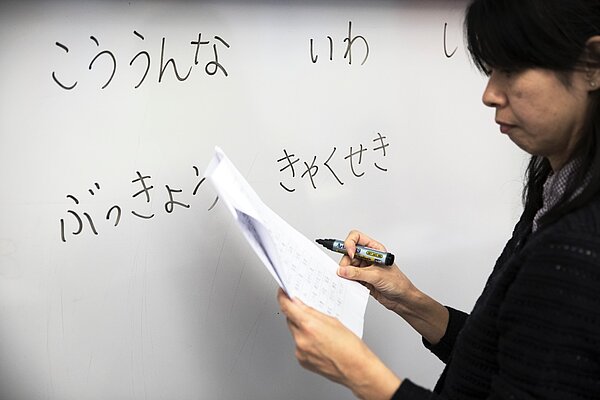 こううんな いわ し
ぶっきょう きゃくせき